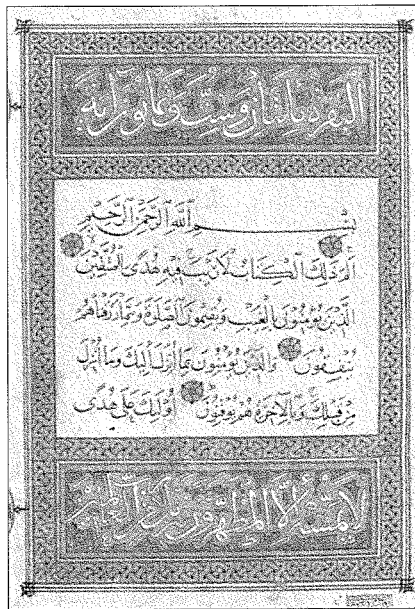 البقرة مائتان وست وثمانون آية
بِسْمِ اللَّهِ الرَّحْمَنِ الرَّحِيمِ
الم ذَلِكَ الْكِتَابُ لَا رَيْبَ فِيهِ هُدًى لِلْمُتَّقِينَ
الَّذِينَ يُؤْمِنُونَ بِالْغَيْبِ وَيُقِيمُونَ الصَّلٰوةَ وَمِمَّا رَزَقْنَاهُمْ
يُنْفِقُونَ وَالَّذِينَ يُؤْمِنُونَ بِمَا أُنْزِلَ إِلَيْكَ وَمَا أُنْزِلَ
مِنْ قَبْلِكَ وَبِالْآخِرَةِ هُمْ يُوقِنُونَ أُولَئِكَ عَلَى هُدًى
لا يمسه إلا المطهرون